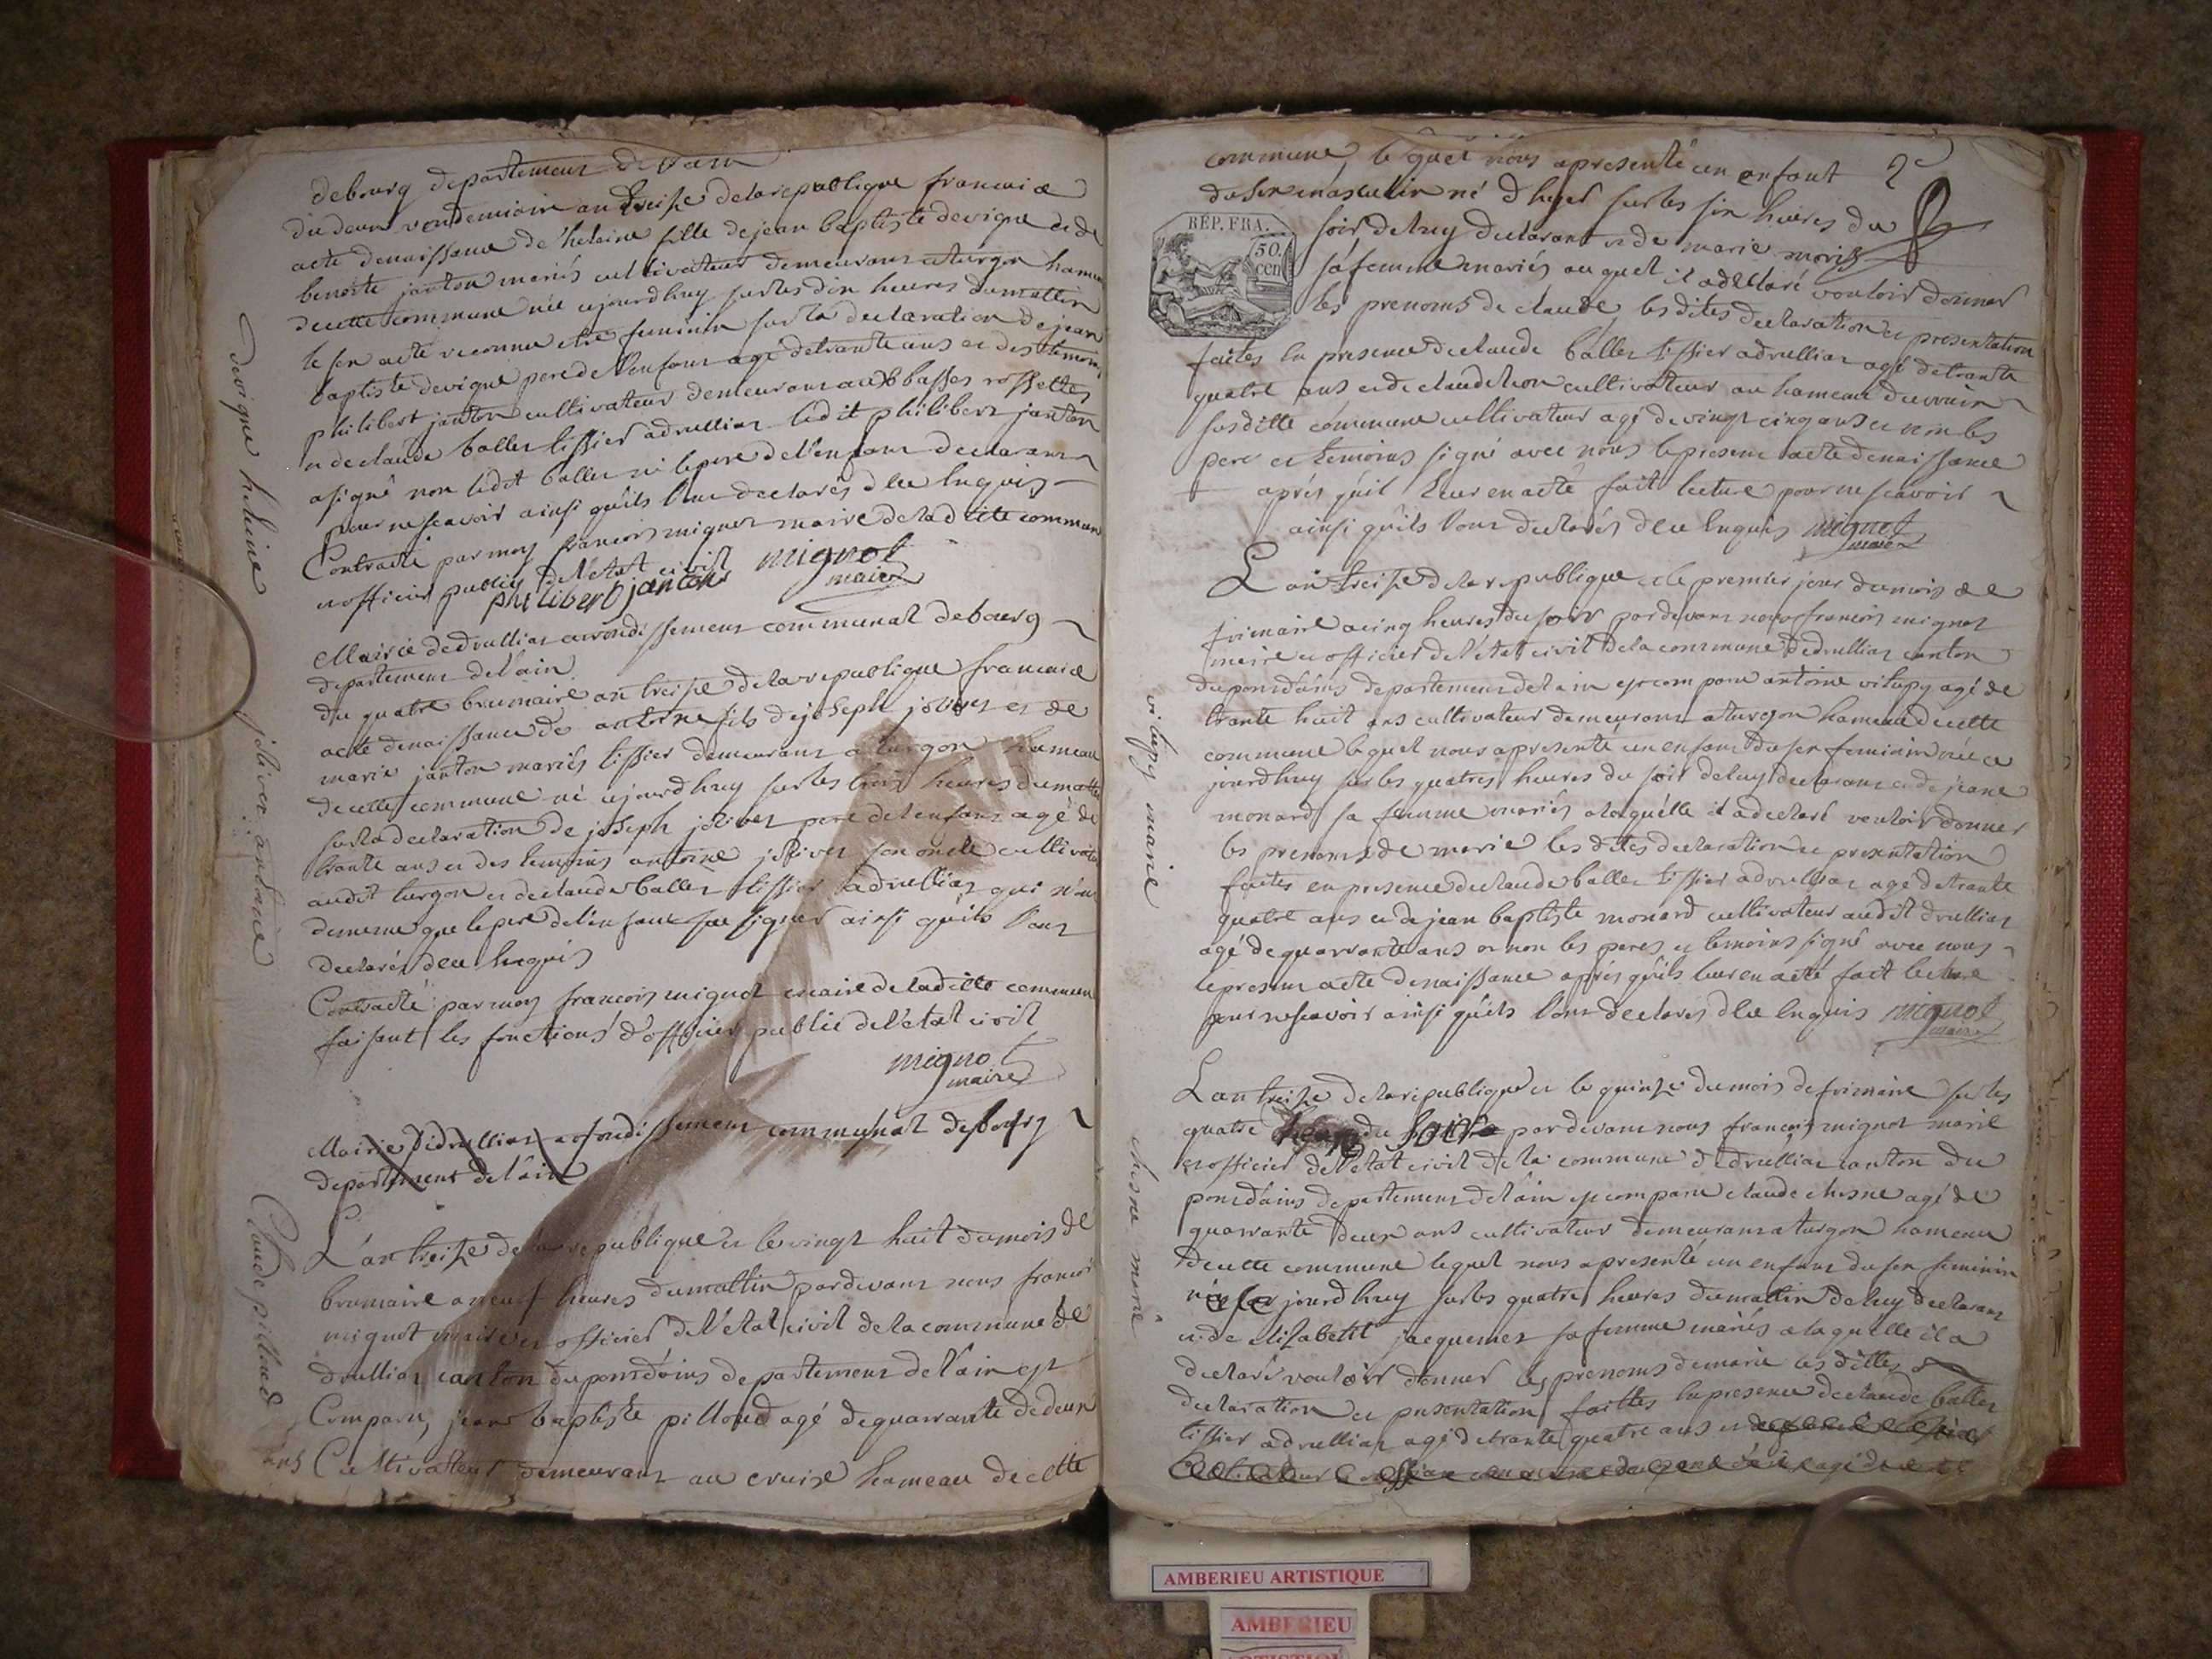 debourg departement de l'ain
du deux vendemiaire an treize dela republique francaise
acte denaissance de heleine fille dejean baptiste devigne et de
benoite janton mariés cultivateur demeurant aturgon hameau
decette commune née ajourdhuy sur les dix heures dumattin
le sex acté reconnu etre feminin sur la declaration dejean
baptiste devigne pere de l'enfant agé detrante ans et des temoins
philibert janton cultivateur demeurant aux basses rossettes
et declaude ballet tissier adrullias ledit philibert janton
asigné non ledit ballet ni lepere de l'enfant declarant
pour nescavoir ainsi quils l'ont declarés dece enquis
Contracté par moy francois mignot maire delad ditte commune
et officier public de l'etat civil
philibert janton
mignot
maire
Mairie dedrullias arrondissement communal debourg
departement de l'ain
du quatre brumaire an treize dela republique francaise
acte denaissance de antoine fils dejoseph jolivet et de
marie janton mariés tissier demeurant a turgon hameau
decette commune né ajourdhuy sur les trois heures dumattin
sur la declaration de joseph jolivet pere del'enfant agé de
trante ans et des temoins antoine jolivet son oncle cultivateur
audit turgon et declaude ballet tissier adrullias qui n'ont
dememe que lepere del'enfant sue signer ainsi quils l'ont
declarés dece enquis
Contracté par moy francois mignot maire deladitte commune
faisant les fonctions d'officier public de l'etat civil
mignot
maire
Mairie dedrullias arrondissement communal debourg
departement de l'ain
L'an treize dela republique et le vingt huit dumois de
brumaire a neuf heures dumattin pardevant nous francois
mignot maire et officier de l'etat civil de la commune de
drullias canton dupontdains departement de l'ain est
Comparu, jean baptiste pilloud agé dequarrante dedeux
ans Cultivateur demeurant au cruix hameau decette
devigne heleine
jolivet antoine
Claude pilloud
commune, lequel nous apresenté un enfant
dusexe masculin né d'hyer sur les six heures du
soir deluy declarant et de marie moris
sa femme mariés auquel il adeclaré vouloir donner
les prenoms de claude, les dites declaration et presentation
faites en presence declaude ballet tissier adrullias agé detrante
quatre ans et de claude cultivateur au hameau ducruix
susditte commune cultivateur agé devingt cinq ans et non les
pere et temoins signé avec nous lepresent acte denaissance
aprés quil leur en acté fait lecture pour nescavoir
ainsi quils l'ont declarés dece enquis mignot
maire
RÉP. FRA.
50
cen
L'an treize dela republique et le premier jour dumois de
frimaire acinq heures du soir pardevant nous francois mignot
maire et officier de l'etat civil dela commune dedrullias canton
dupontdains departement del'ain est comparu antoine vitupy agé de
trante huit ans cultivateur demeurant aturgon hameau decette
commune lequel nous apresenté un enfant du sex feminin née ce
jourdhuy sur les quatres heures du soir deluy declarant et de jeane
monard sa femme mariés alaquelle il adeclaré vouloir donner
les prenoms de marie les dites declaration et presentation
faites en presence declaude ballet tissier adrullias agé detrante
quatre ans et de jean baptiste monard cultivateur audit drullias
agé de quarrante ans et non les peres et temoins signé avec nous
lepresent acte denaissance aprés quils leur en acté fait lecture
pour nescavoir ainsi quils l'ont declarés dece enquis mignot
maire
L'an treize dela republique et le quinze dumois defrimaire sur les
quatre du soir pardevant nous francois mignot maire
et officier de l'etat civil de la commune dedrullias canton du
pontdains departement del'ain est comparu claude chesne agé de
quarrante deux ans cultivateur demeurant aturgon hameau
decette commune lequel nous apresenté un enfant du sex feminin
née jourdhuy sur les quatre heures dumattin deluy declarant
et de elizabett jacquemet sa femme mariés alaquelle il a
declaré vouloir donner les prenoms demarie les dittes
declaration et presentation faittes en presence declaude ballet
tissier adrullias agé detrante quatre ans et
vitupy marie
chesne marie
AMBERIEU ARTISTIQUE
AMBERIEU
ARTISTIQUE